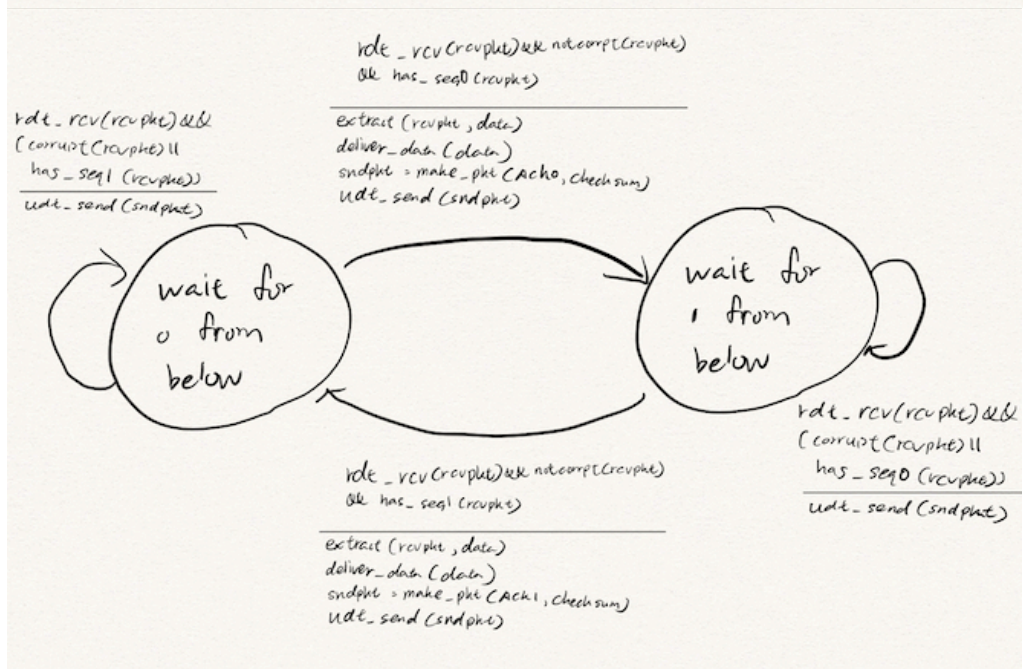 rdt_rcv(rcvpkt) && notcorrpt(rcvpkt)
&& has_seq0(rcvpkt)
extract(rcvpkt, data)
deliver_data(data)
sndpkt = make_pkt(Ack0, checksum)
udt_send(sndpkt)
rdt_rcv(rcvpkt) &&
(corrupt(rcvpkt) ||
has_seq1(rcvpkt))
udt_send(sndpkt)
wait for
0 from
below
wait for
1 from
below
rdt_rcv(rcvpkt) &&
(corrupt(rcvpkt) ||
has_seq0(rcvpkt))
udt_send(sndpkt)
rdt_rcv(rcvpkt) && notcorrpt(rcvpkt)
&& has_seq1(rcvpkt)
extract(rcvpkt, data)
deliver_data(data)
sndpkt = make_pkt(Ack1, checksum)
udt_send(sndpkt)